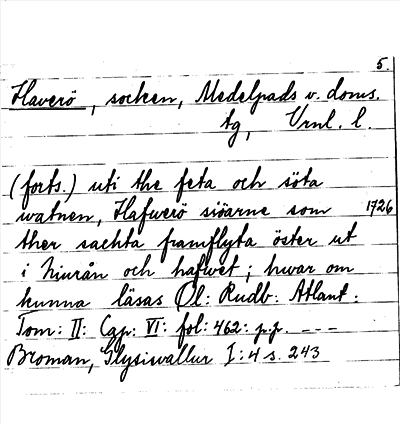 5.
Haverö, socken, Medelpads v. doms.
tg, Vrnl. l.
(forts.) uti the feta och söta
watnen, Hafwerö siöarne som 1726
ther sachta framflyta öster ut
i Niurån och hafwet; hwar om
kunna läsas Ol: Rudb: Atlant:
Tom: II: Cap: VI: fol: 462: p.p. ---
Broman, Glysiswallur I: 4 s. 243